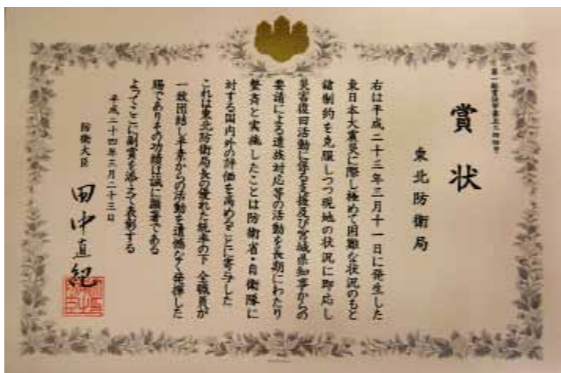 賞状
東北防衛局
右は平成二十三年三月十一日に発生した
東日本大震災に際し極めて困難な状況のもと
諸制約を克服しつつ現地の状況に即応し
災害復旧活動に係る支援及び宮城県知事からの
要請による遺族対応等の活動を長期にわたり
整斉と実施したことは防衛省・自衛隊に
対する国内外の評価を高めることに寄与した
これは東北防衛局長の優れた統率の下全職員が
一致団結し平素からの活動を遺憾なく発揮した
賜でありその功績は誠に顕著である
よってここに副賞を添えて表彰する
平成二十四年三月二十三日
防衛大臣
田中直紀